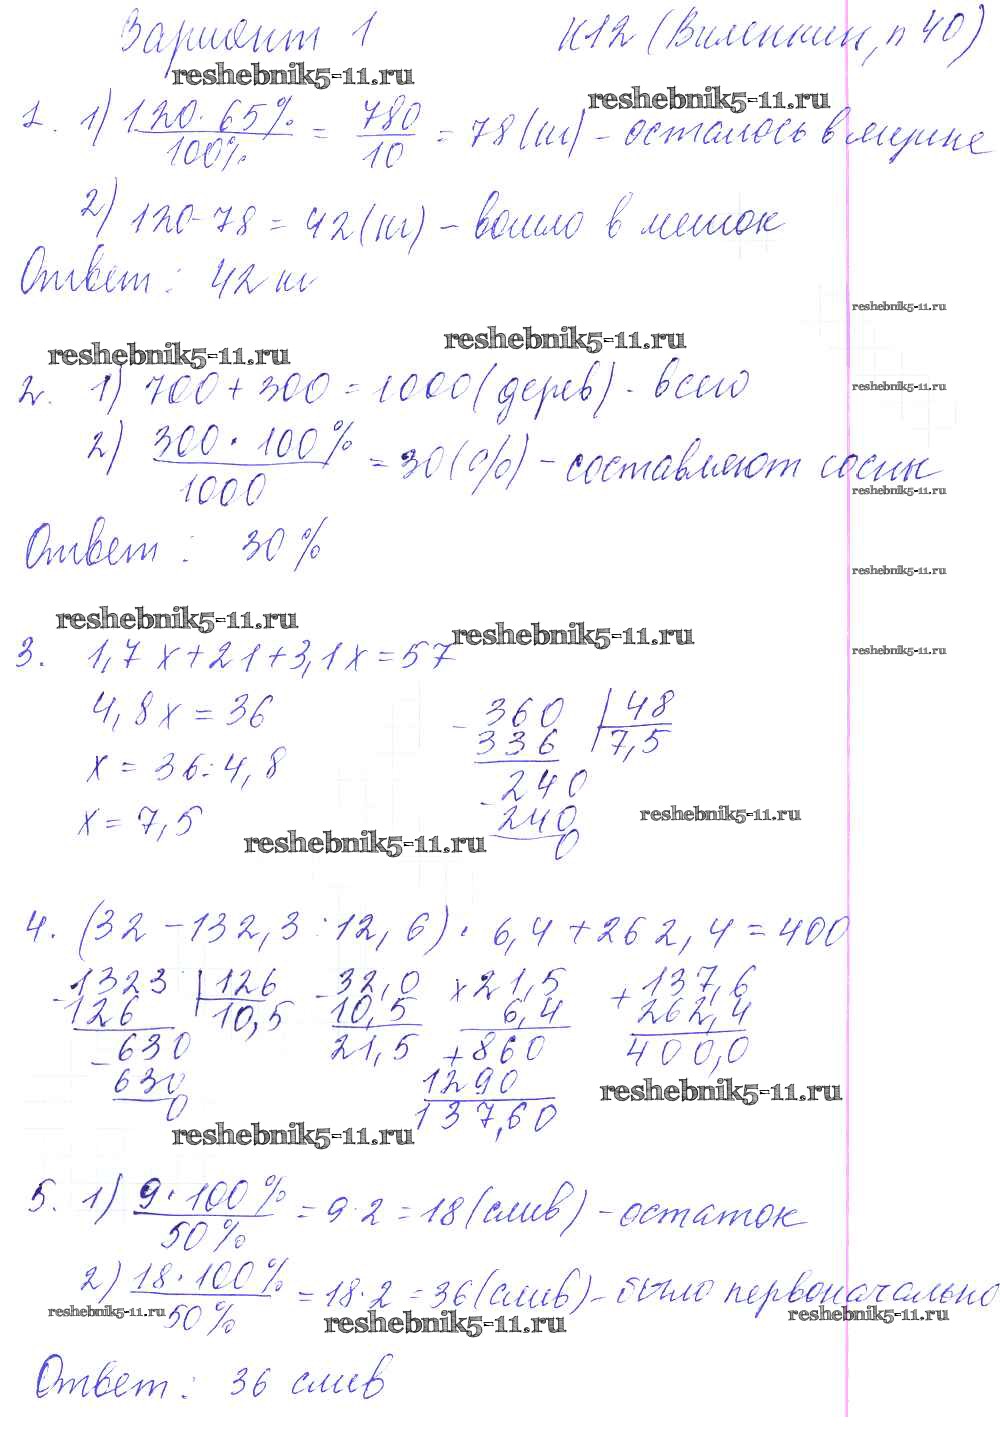 Вариант 1 К12 (Виленкин, п 40)
reshebnik5-11.ru
reshebnik5-11.ru
1. 1) 120·65%/100% = 780/10 = 78 (кг) - осталось в ящике
2) 120-78 = 42 (кг) - вошло в мешок
Ответ: 42 кг
reshebnik5-11.ru
reshebnik5-11.ru
reshebnik5-11.ru
reshebnik5-11.ru
2. 1) 700 + 300 = 1000 (дерев) - всего
2) 300·100%/1000 = 30 (%) - составляют сосны
reshebnik5-11.ru
Ответ: 30%
reshebnik5-11.ru
reshebnik5-11.ru
reshebnik5-11.ru
reshebnik5-11.ru
3. 1,7x + 21 + 3,1x = 57
4,8x = 36
x = 36:4,8
x = 7,5
- 360 | 48
336 7,5
- 240
240
0
reshebnik5-11.ru
reshebnik5-11.ru
4. (32 - 132,3 : 12,6) · 6,4 + 262,4 = 400
- 1323 | 126 - 32,0 x 21,5 + 137,6
126 10,5 10,5 6,4 262,4
- 630 21,5 + 860 400,0
630 1290
0 137,60
reshebnik5-11.ru
reshebnik5-11.ru
5. 1) 9·100%/50% = 9·2 = 18 (слив) - остаток
2) 18·100%/50% = 18·2 = 36 (слив) - было первоначально
reshebnik5-11.ru
reshebnik5-11.ru
reshebnik5-11.ru
Ответ: 36 слив